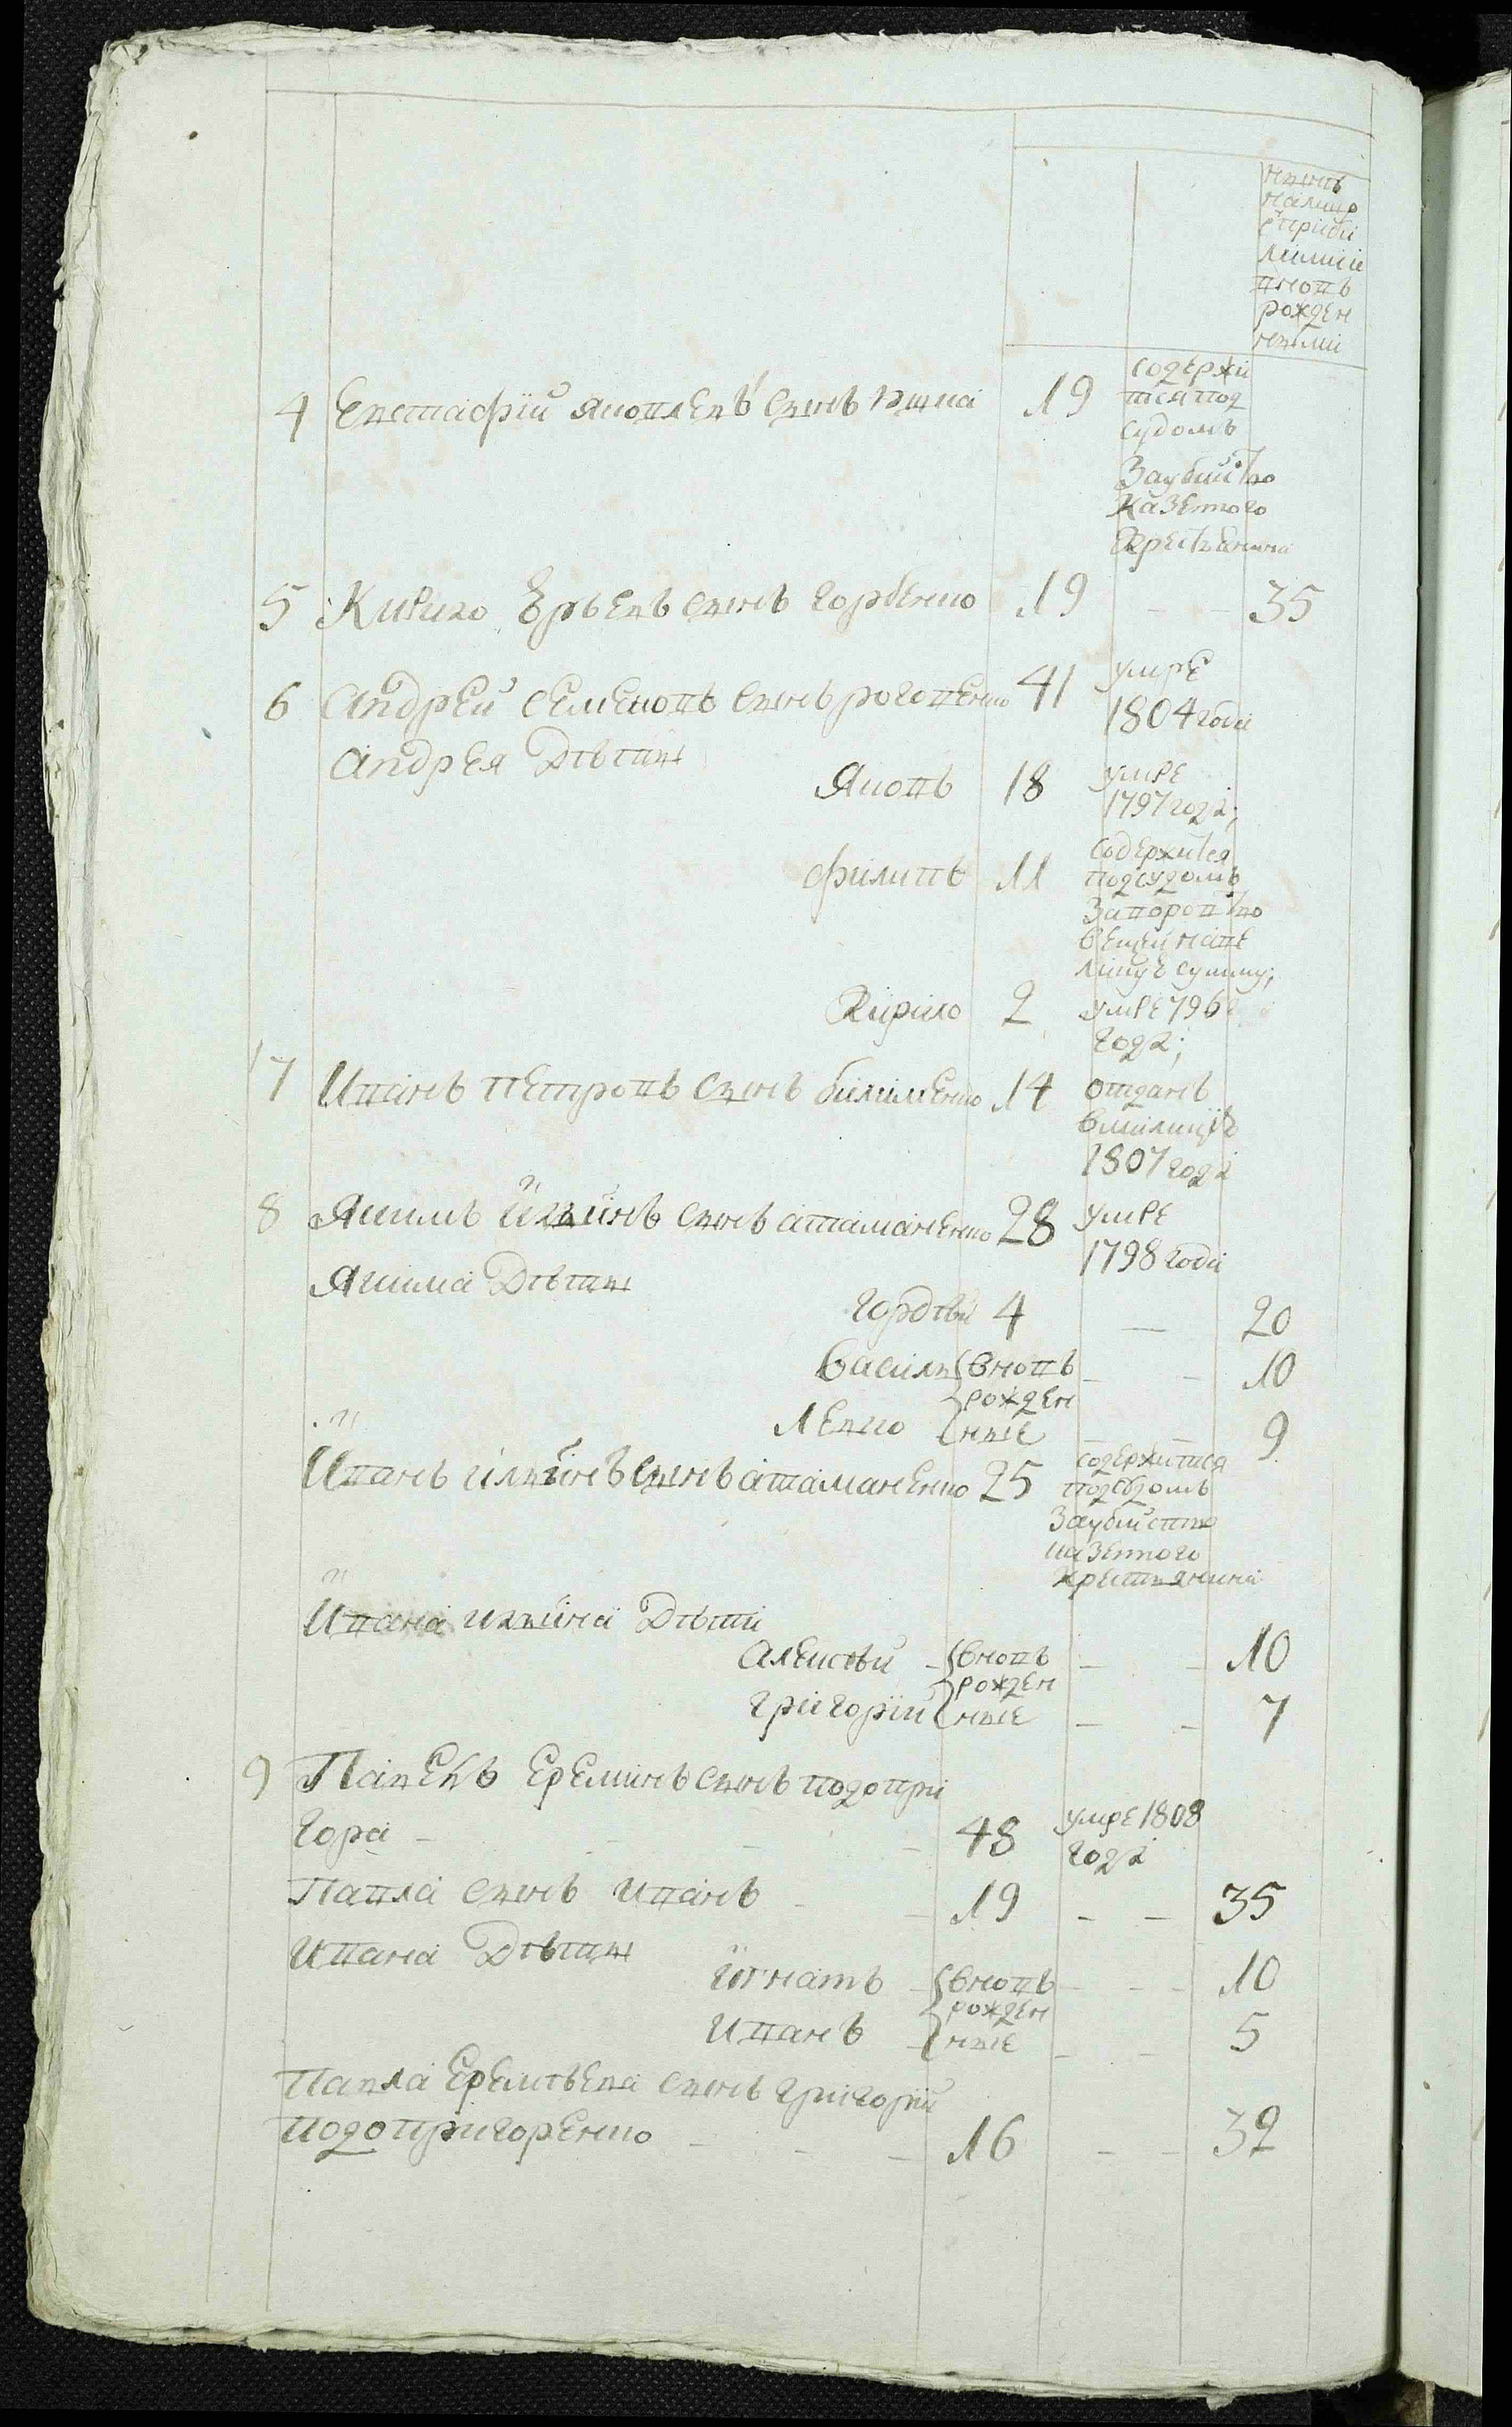 нынѣ
налицо
с прибы
лыми и
вновь
рожден
ными
4 Евстафий яковлевъ сынъ 19 содержи
тся под
судомъ
За убийство
Казенного
крестьянина
5 Кирило Юрьевъ сынъ горбенко 19 - - 35
6 Андрей семеновъ сынъ роговенко 41 умре
1804 года
Андрея Дѣти
Яковъ 18 умре
1797 года;
филипъ 11 содержится
под судомъ
За воровство
вещей на ве
лику сумму;
Кирило 2 умре 796
года;
7 Иванъ петровъ сынъ билименко 14 отданъ
в милицию
1807 года
8 Якимъ ильинъ сынъ атаманенко 28 умре
1798 года
Якима Дѣти
гордѣй 4 — 20
василь вновь - - 10
рожден
левко ные 9
Иванъ ильинъ сынъ атаманенко 25 содержится
под судомъ
За убийство
казенного
крестьянина
Ивана ильина Дѣти
Алексѣй - вновь - - 10
рожден
григорий ные - - 7
9 Павелъ Еремѣинъ сынъ подопри
гора - - - - 48 умре 1808
года
Павла сынъ иванъ - - 19 - - 35
ивана Дѣти
игнатъ - вновь - - - 10
рожден
иванъ - ные - - 5
Павла Еремѣева сынъ григорий
подопригоренко - - - 16 - - 32